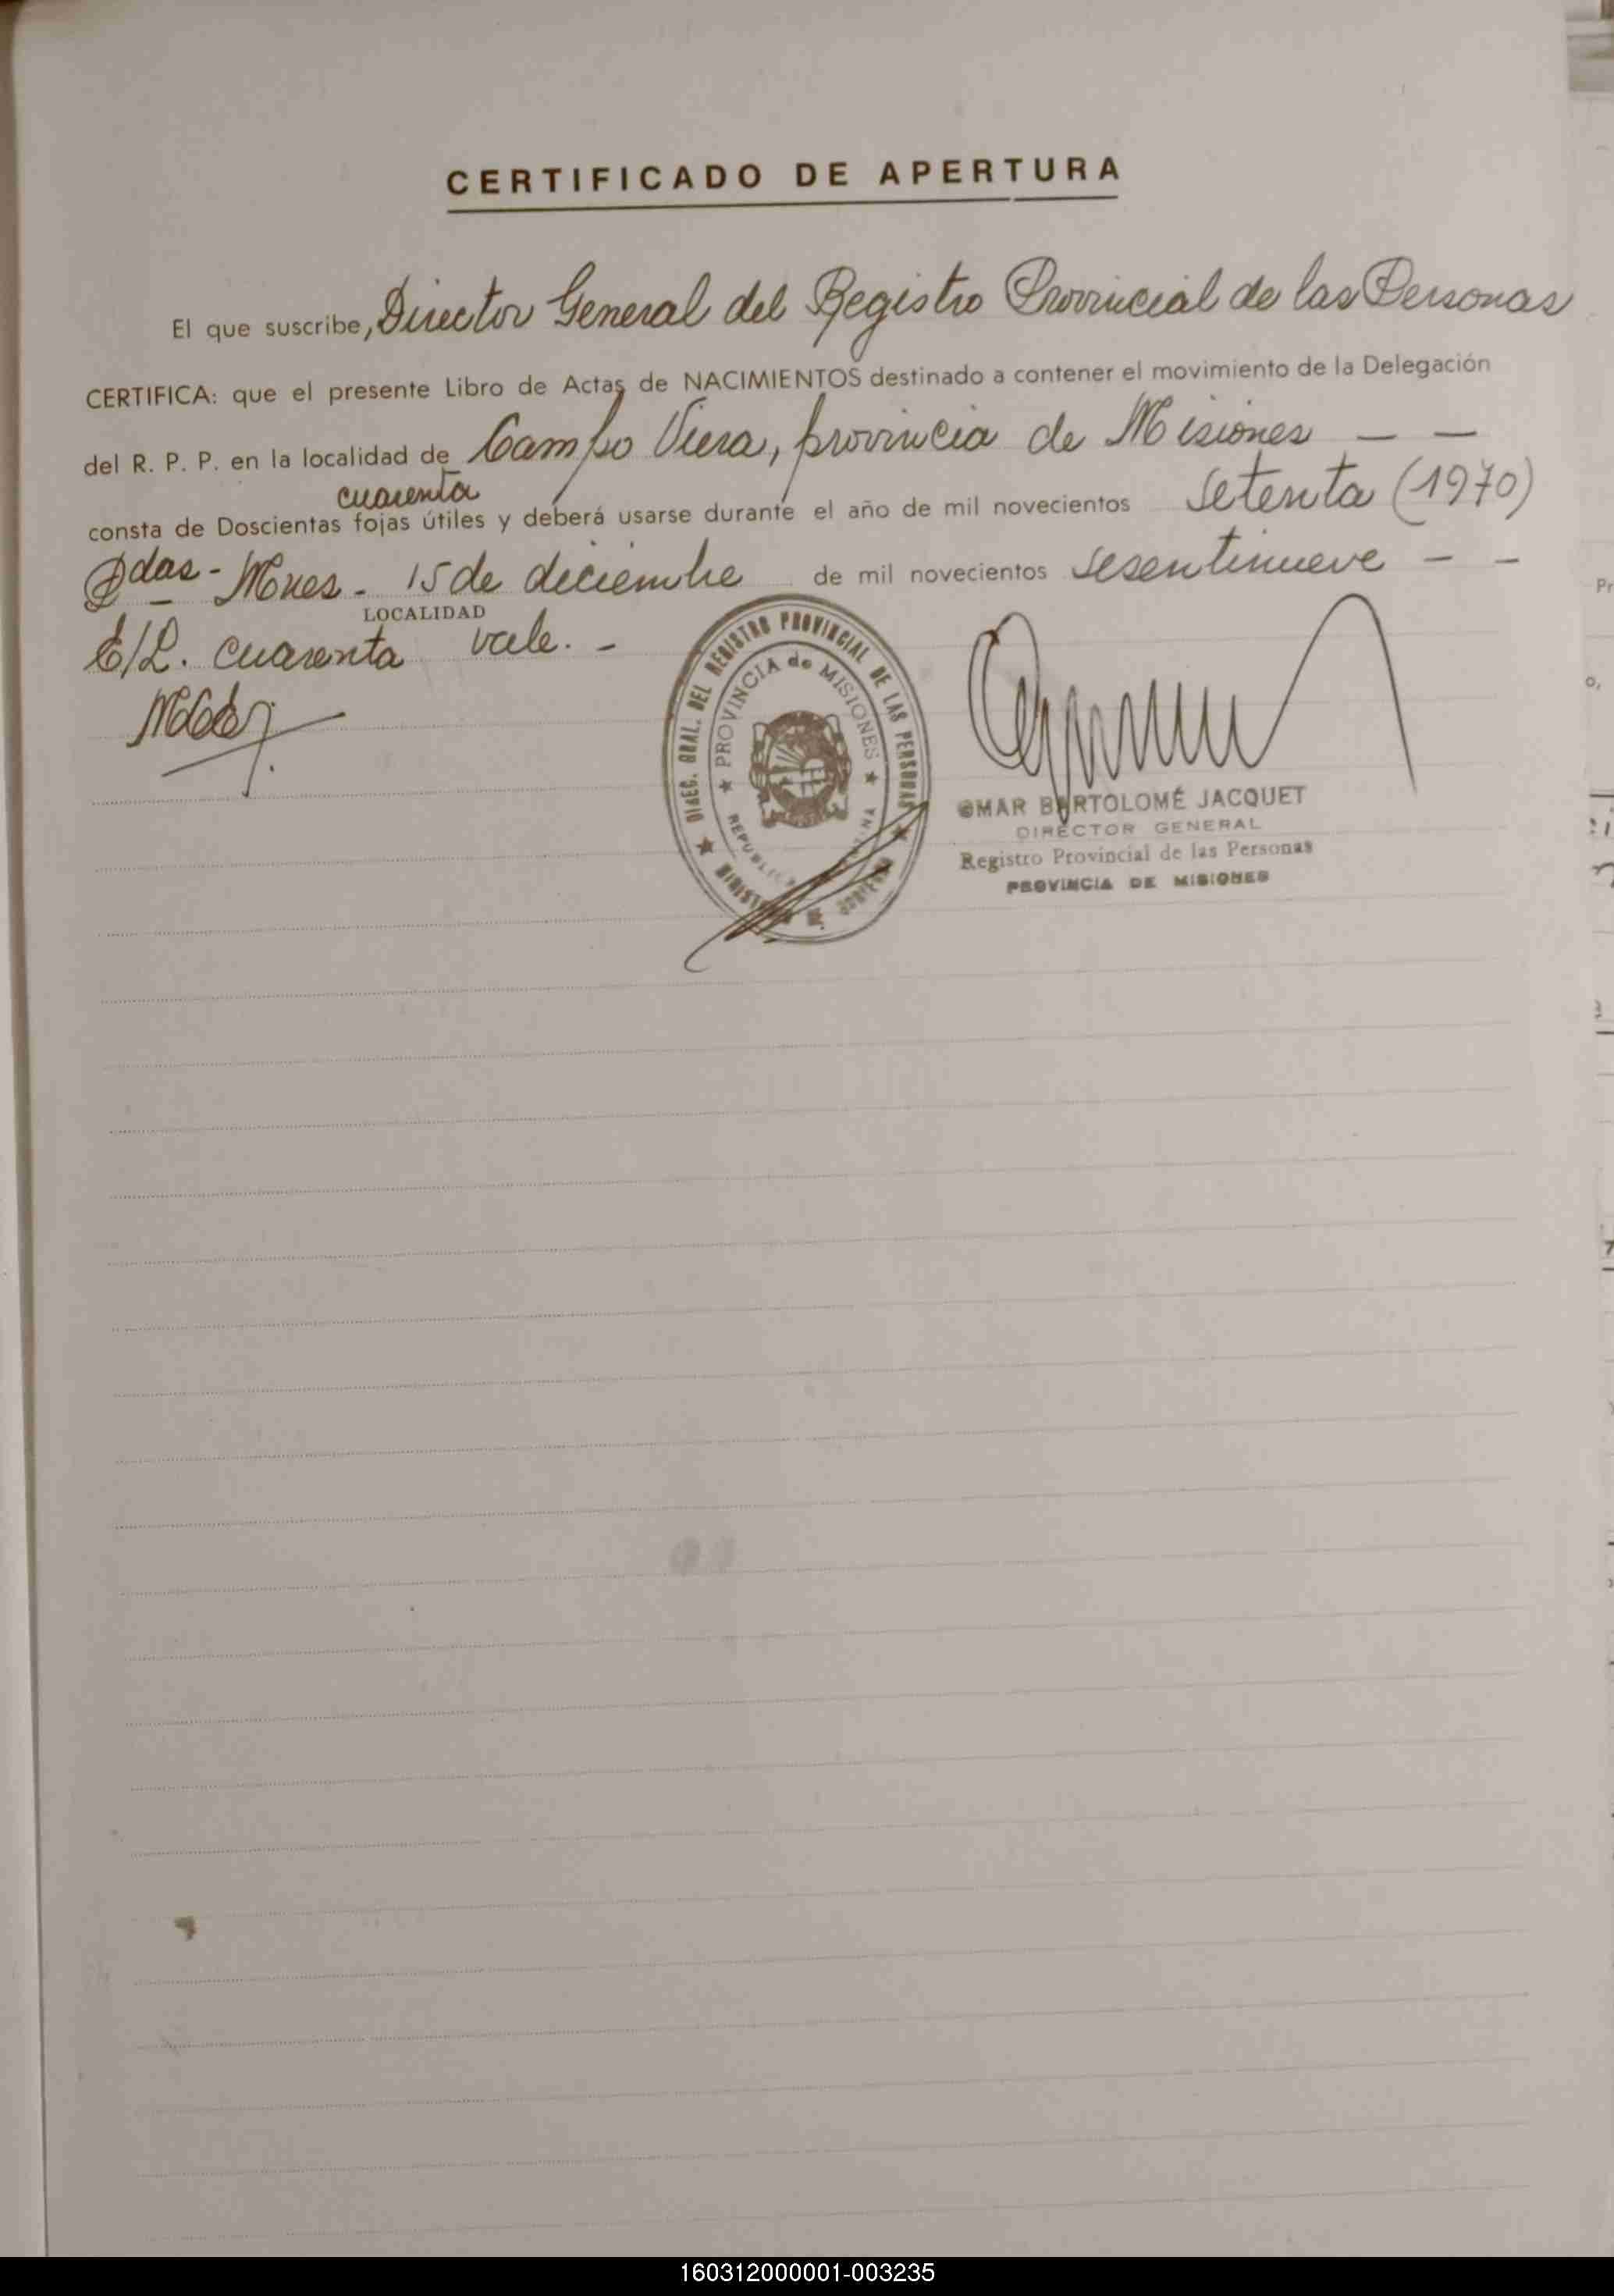 CERTIFICADO DE APERTURA
El que suscribe, Director General del Registro Provincial de las Personas
CERTIFICA: que el presente Libro de Actas de NACIMIENTOS destinado a contener el movimiento de la Delegación
del R. P. P. en la localidad de Campo Viera, provincia de Misiones - -
cuarenta
consta de Doscientas fojas útiles y deberá usarse durante el año de mil novecientos setenta (1970)
Pdas - Mnes. 15 de diciembre de mil novecientos sesentinueve - -
LOCALIDAD
E/L. cuarenta vale. -
DIREC. GRAL. DEL REGISTRO PROVINCIAL DE LAS PERSONAS
★ PROVINCIA de MISIONES ★
OMAR BARTOLOMÉ JACQUET
DIRECTOR GENERAL
Registro Provincial de las Personas
PROVINCIA DE MISIONES
160312000001-003235